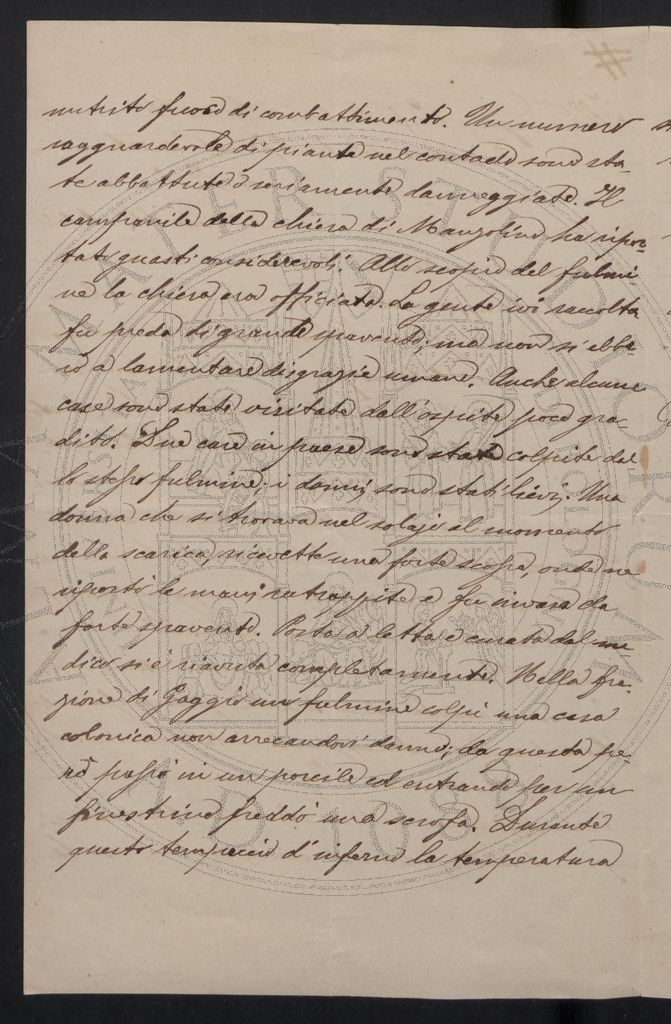 nutrito fuori di combattimento. Un numero
ragguardevole di piante nel contado sono sta-
te abbattute o seriamente danneggiate. Il
campanile della chiesa di Manzolino ha ripor-
tato guasti considerevoli. Allo scopio del fulmi-
ne la chiesa era officiata. La gente ivi raccolta
fu preda di grande spavento; ma non si ebbe-
ro a lamentare disgrazie umane. Anche alcune
case sono state visitate dall'ospite poco gra-
dito. Due case in paese sono state colpite dal-
lo stesso fulmine; i danni sono stati lievi. Una
donna che si trovava nel solajo al momento
della scarica, ricevette una forte scossa, onde ne
riportò le mani rattrappite e fu invasa da
forte spavento. Posta a letto e curata dal me
dico si è riavuta completamente. Nella fra-
zione di Gaggio un fulmine colpì una casa
colonica non arrecandovi danno; da questa pe-
rò passò in un porcile ed entrando per un
finestrino freddò una scrofa. Durante
questo tempaccio d'inferno la temperatura